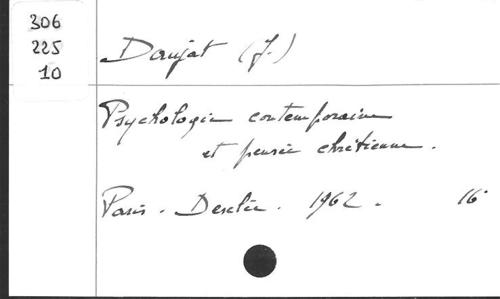 306
225
10
Daujat (J.)
Psychologie contemporaine
et pensée chrétienne.
Paris. Desclée. 1962. 16°